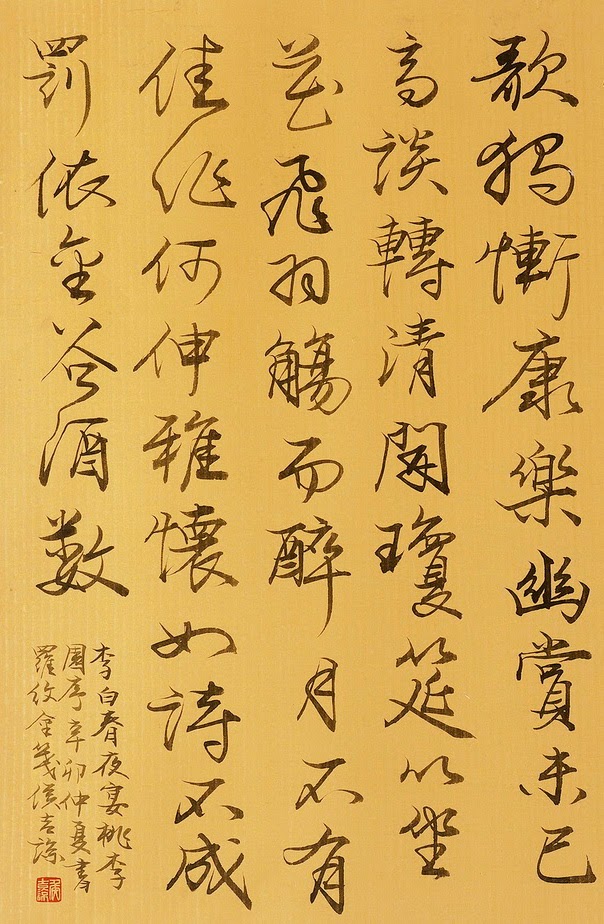 歌獨慚康樂幽賞未已
高談轉清開瓊筵以坐
花飛羽觴而醉月不有
佳作何伸雅懷如詩不成
罰依金谷酒数
李白春夜宴桃李
園序辛卯仲夏書
羅紋金箋侯吉諒